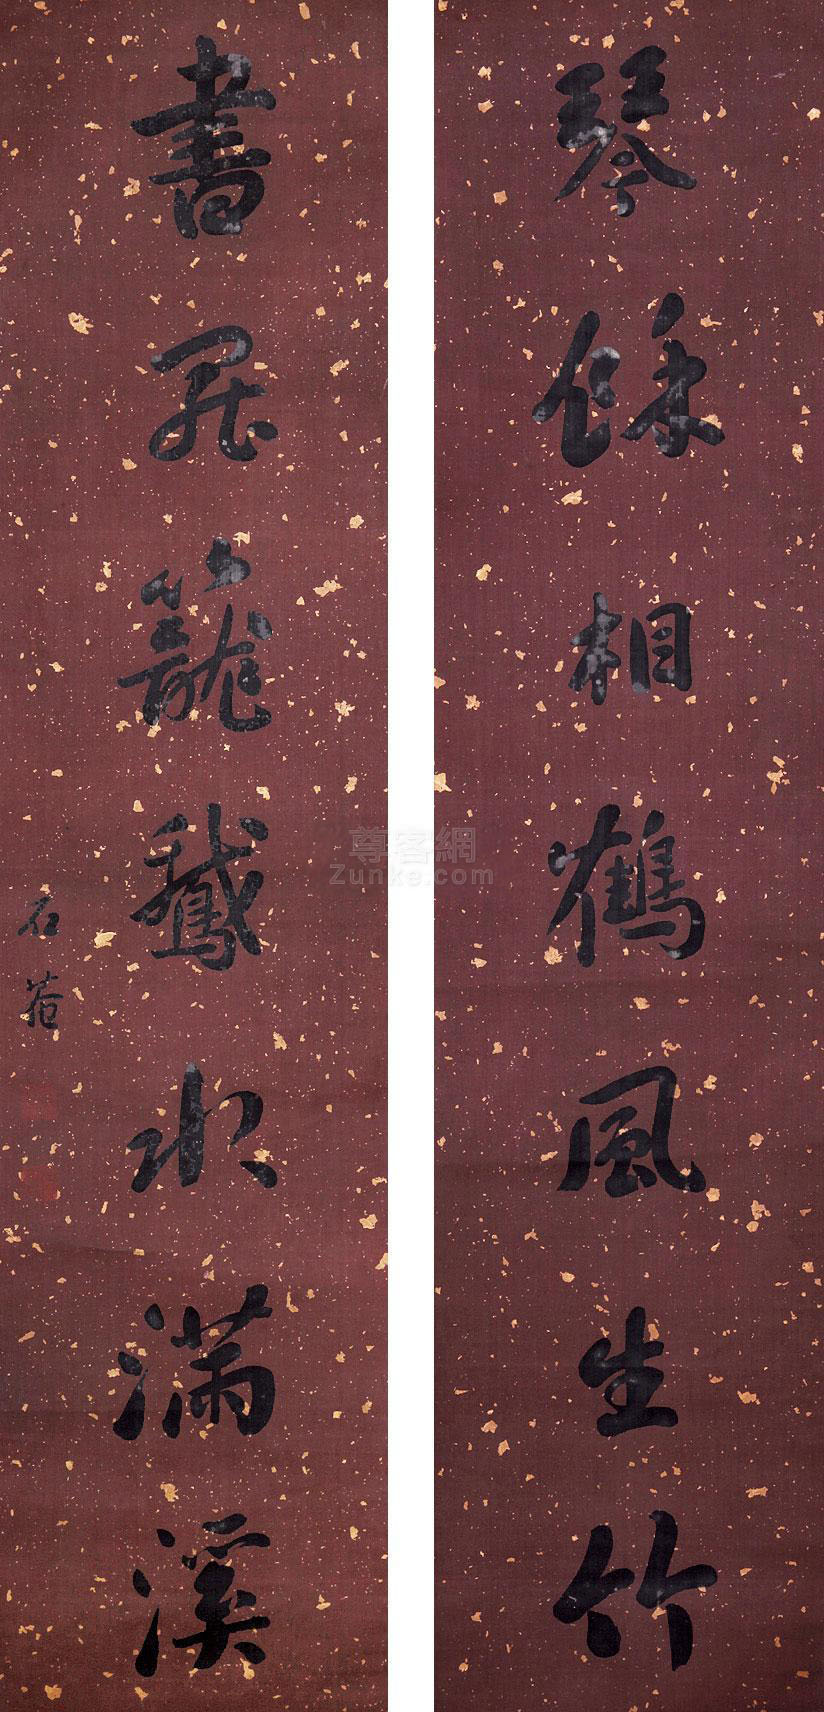 琴餘相鶴風生竹
書罷籠鵞水滿溪
石菴
尊客網
Zunke.com